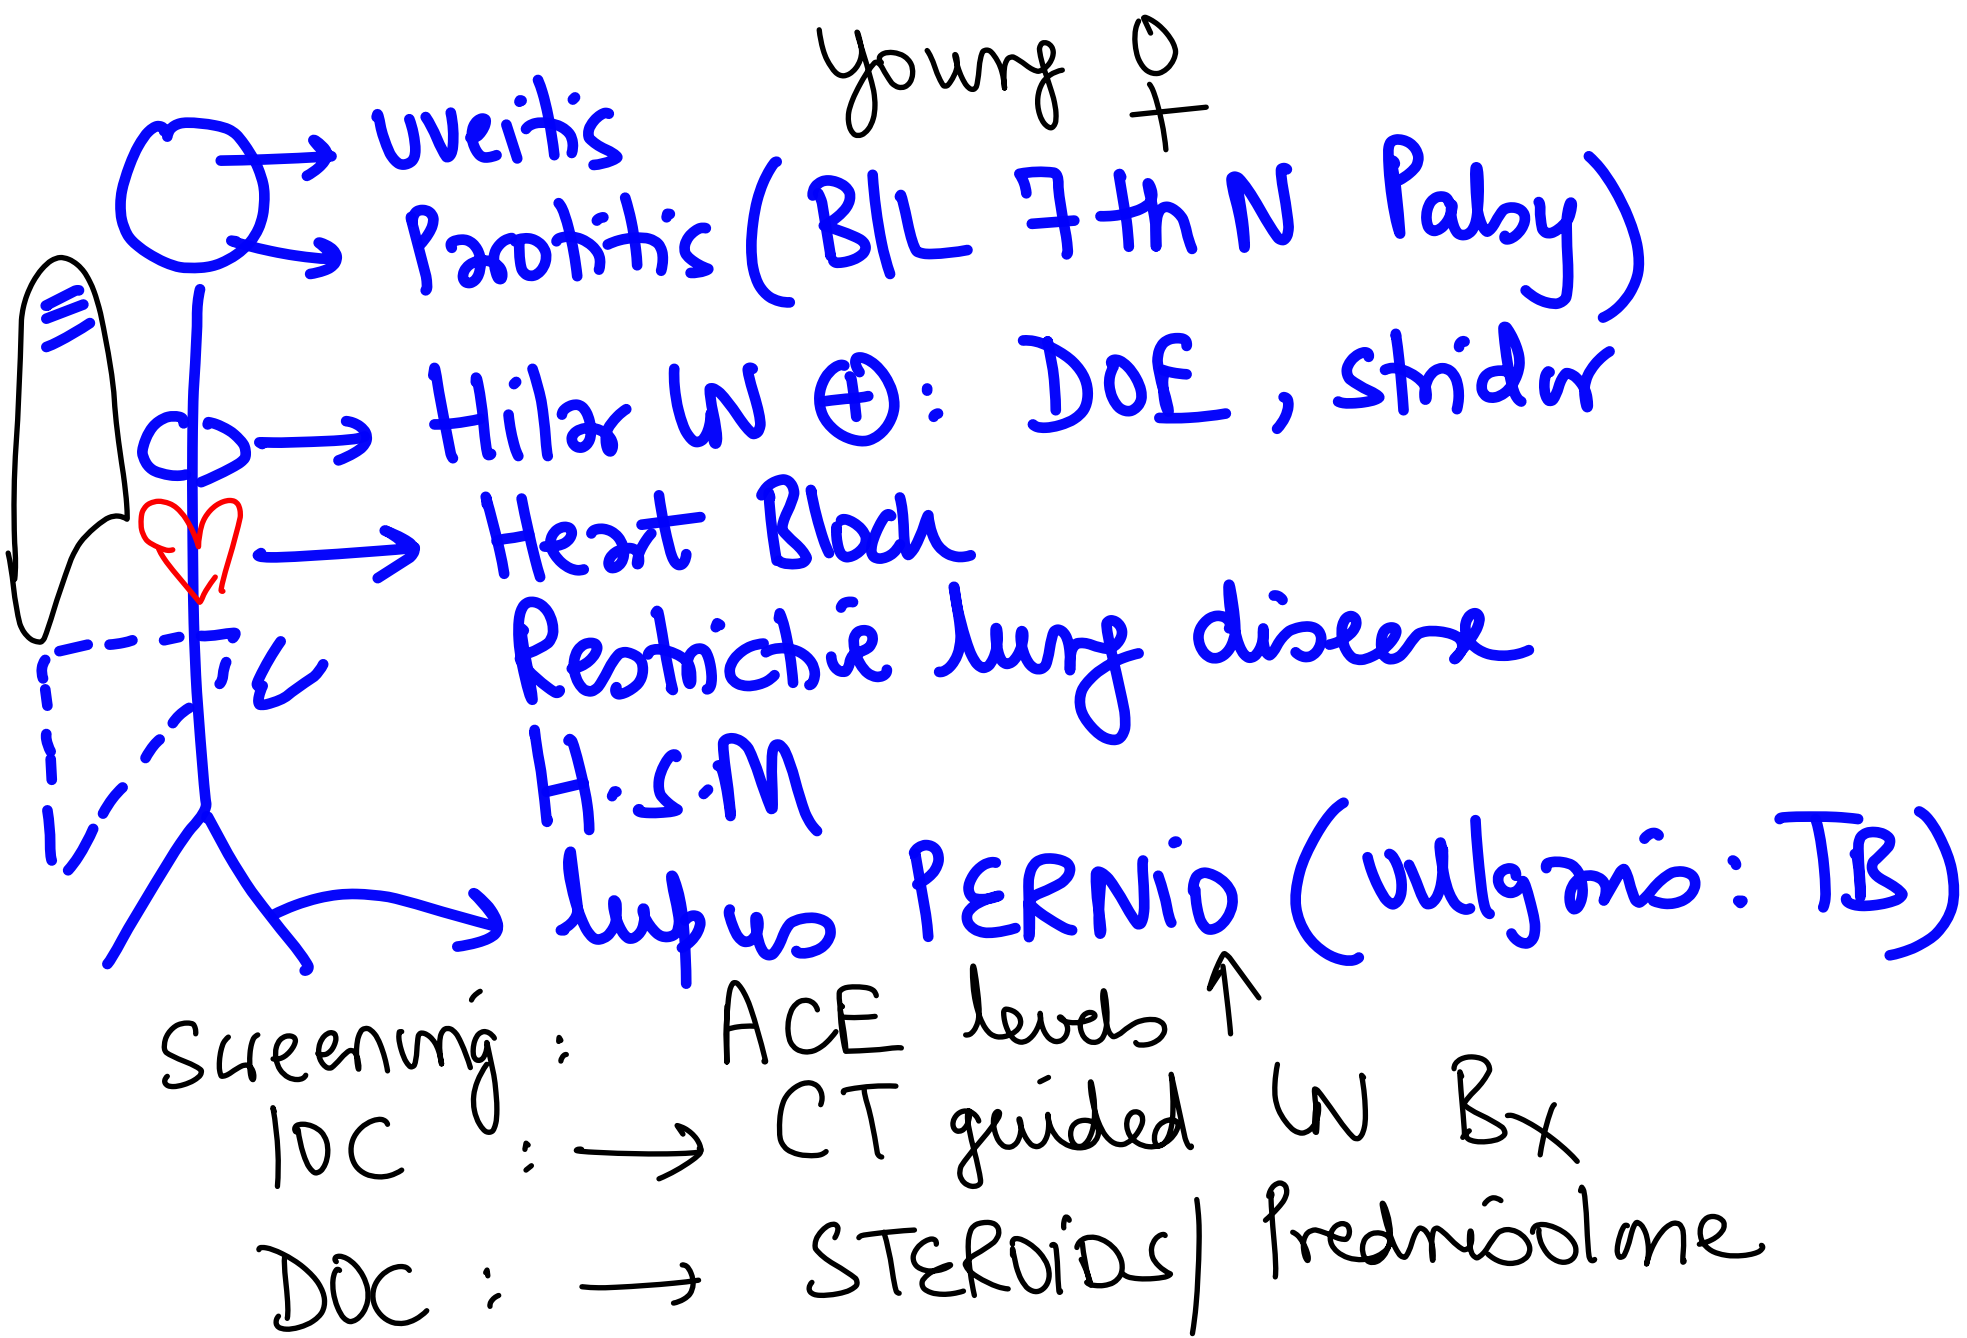 Young ♀
Uveitis
Parotitis (B/L 7th N Palsy)
Hilar LN ⊕: DOE, stridor
Heart Block
Restrictive lung disease
H.S.M
lupus PERNiO (vulgaris: TB)
Screening: ACE levels ↑
IOC : → CT guided LN Bx
DOC : → STEROiDS/ Prednisolone